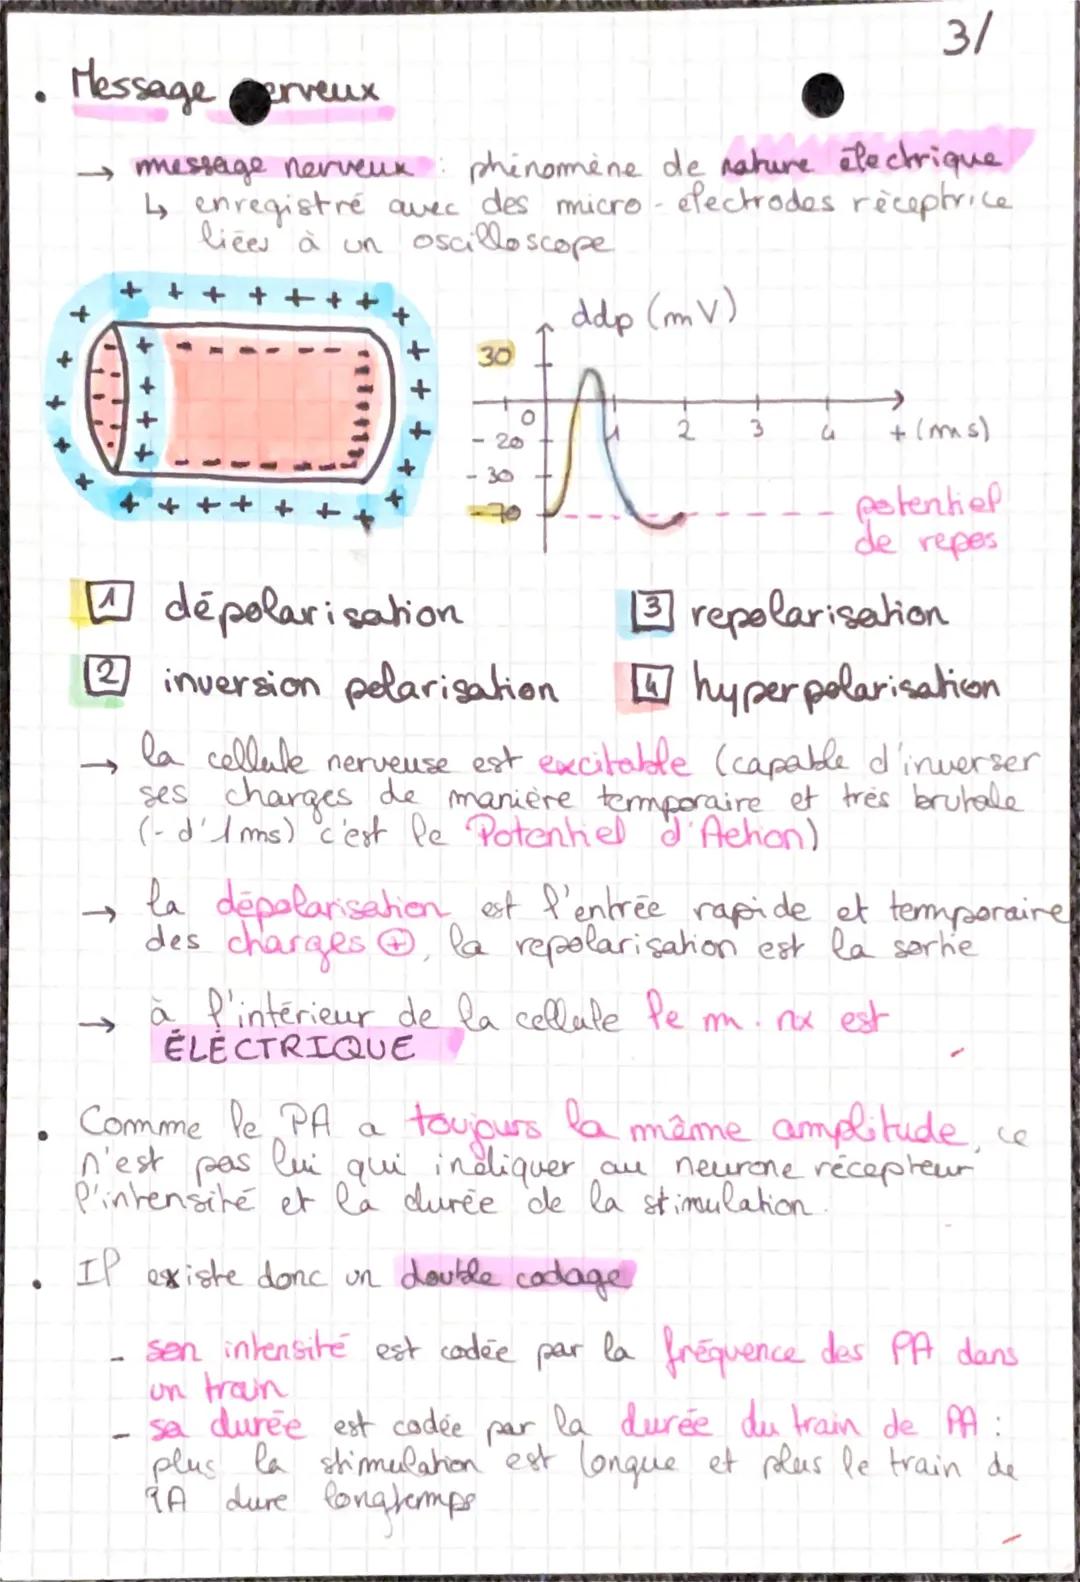 3/
• Message erveux
→ message nerveux : phénomène de nature électrique
↳ enregistré avec des micro-électrodes réceptrice
liées à un oscilloscope
ddp (mV)
30
0
1 2 3 4 t (ms)
- 20
- 30
- 70
potentiel
de repos
1 dépolarisation
3 repolarisation
2 inversion polarisation
4 hyperpolarisation
→ la cellule nerveuse est excitable (capable d'inverser
ses charges de manière temporaire et très brutale
(- d'1ms) c'est le Potentiel d'Action)
→ la dépolarisation est l'entrée rapide et temporaire
des charges ⊕, la repolarisation est la sortie
→ à l'intérieur de la cellule le m. nx est
ÉLÉCTRIQUE
• Comme le PA a toujours la même amplitude, ce
n'est pas lui qui indiquer au neurone récepteur
l'intensité et la durée de la stimulation.
• Il existe donc un double codage
- son intensité est codée par la fréquence des PA dans
un train
- sa durée est codée par la durée du train de PA :
plus la stimulation est longue et plus le train de
PA dure longtemps